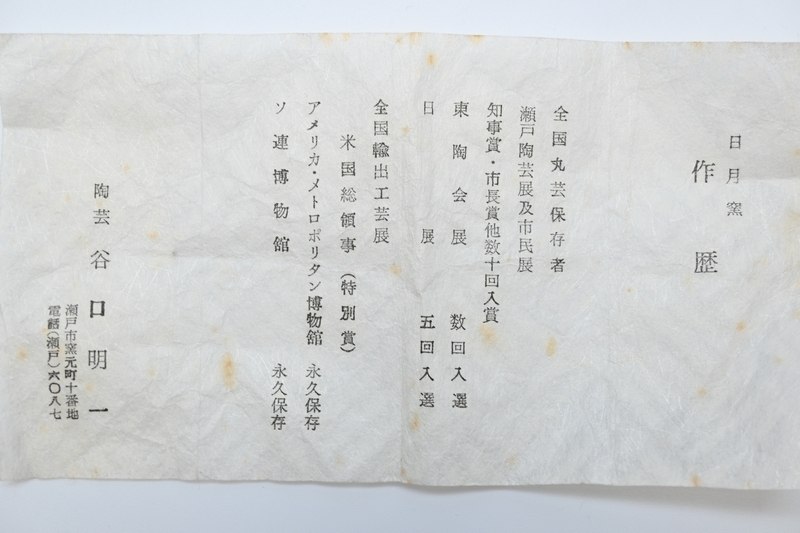 日月窯
作歴
全国丸芸保存者
瀬戸陶芸展及市民展
知事賞・市長賞他数十回入賞
東陶会展 数回入選
日展 五回入選
全国輸出工芸展
米国総領事（特別賞）
アメリカ・メトロポリタン博物館 永久保存
ソ連博物館 永久保存
陶芸 谷口明一
瀬戸市窯元町十番地
電話（瀬戸）六〇八七